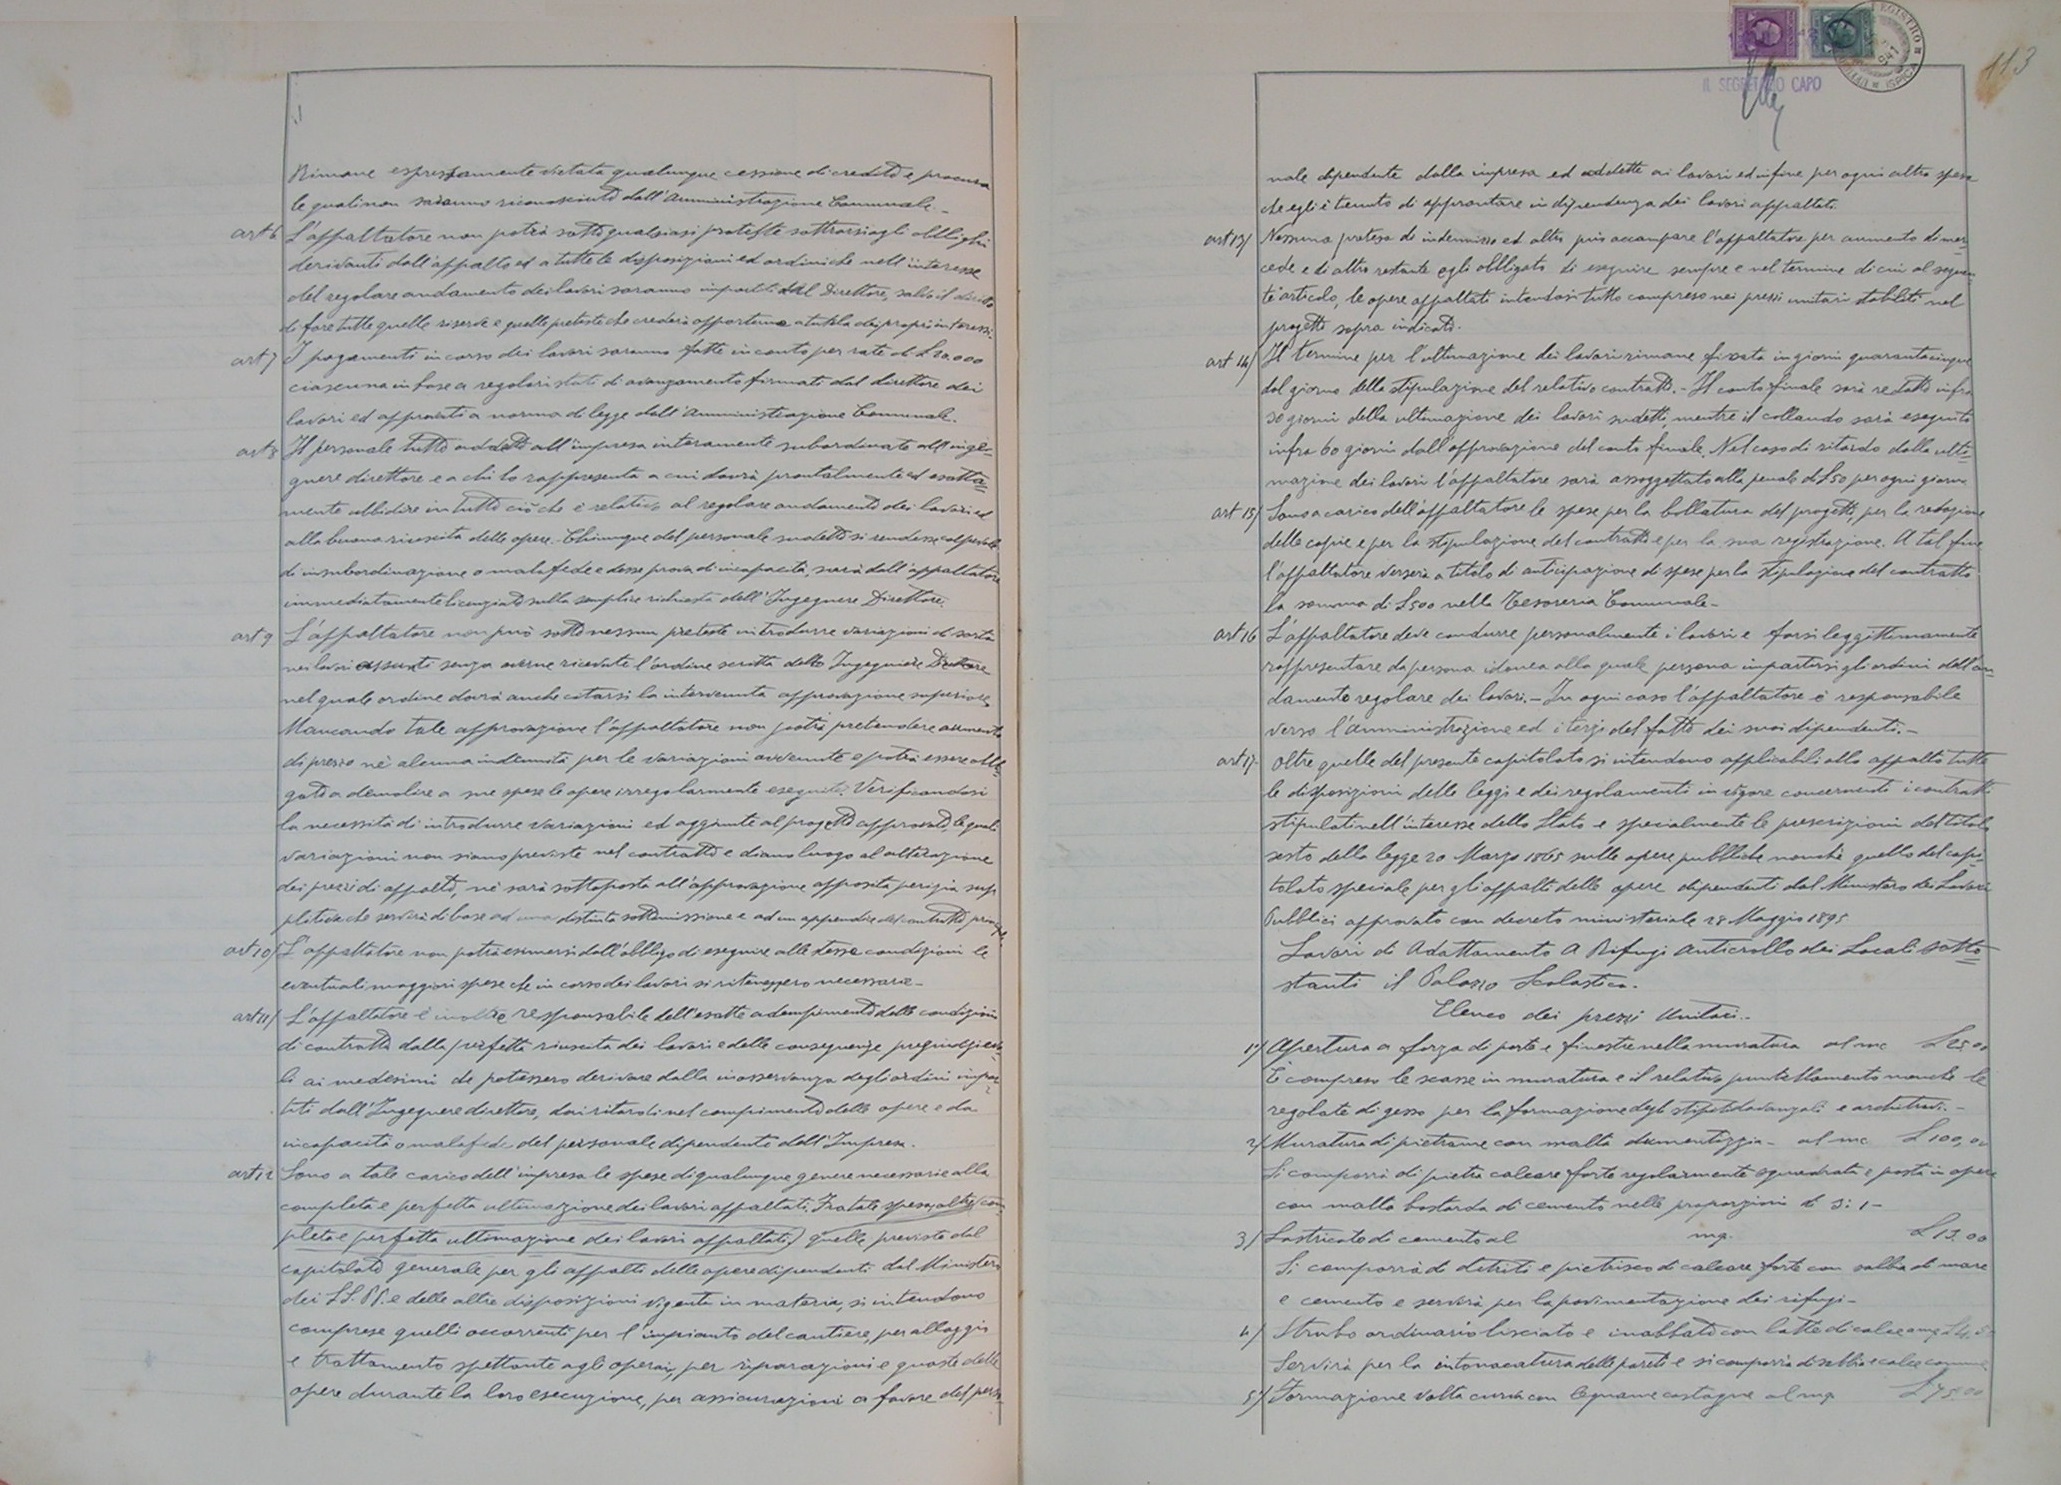 Rimane espressamente vietata qualunque cessione di credito e procura
le quali non saranno riconosciute dall'Amministrazione Comunale.-
art 6 L'appaltatore non potrà sotto qualsiasi proteste sottrarsi agli obblighi
derivanti dall'appalto ed a tutte le disposizioni ed ordini che nell'interesse
del regolare andamento dei lavori saranno impartiti dal Direttore, salvo il diritto
di fare tutte quelle riserve e quelle proteste che crederà opportune a tutela dei propri interessi.
art 7 I pagamenti in corso dei lavori saranno fatte in conto per rate di £ 20.000
ciascuna in base a regolari stati di avanzamento firmati dal direttore dei
lavori ed approvati a norma di legge dall'Amministrazione Comunale.
art 8 Il personale tutto addetto all'impresa interamente subordinato all'inge-
gnere direttore e a chi lo rappresenta a cui dovrà prontalmente ed esatta=
mente ubbidire in tutto ciò che è relativo al regolare andamento dei lavori ed
alla buona riuscita delle opere. Chiunque del personale sudetto si rendesse colpevole
di insubordinazione o malafede e desse prova di incapacità, sarà dall'appaltatore
immediatamente licenziato sulla semplice richiesta dell'Ingegnere Direttore.
art 9 L'appaltatore non può sotto nessun pretesto introdurre variazioni di sorta
nei lavori assunti senza averne ricevute l'ordine scritto dello Ingegniere Direttore
nel quale ordine dovrà anche citarsi la intervenuta approvazione superiore
Mancando tale approvazione l'appaltatore non potrà pretendere aumento
di prezzo nè alcuna indennità per le variazioni avvenute e potrà essere obbli
gato a demolire a sue spese le opere irregolarmente eseguite. Verificandosi
la necessità di introdurre variazioni ed aggiunte al progetto approvato, le quali
variazioni non siano previste nel contratto e diano luogo ad alterazione
dei prezzi di appalto, nè sarà sottoposta all'approvazione apposita perizia sup
pletiva che servirà di base ad una distinta sottomissione e ad un appendice del contratto princ.
art 10/ L'appaltatore non potrà esimersi dall'obbligo di eseguire alle stesse condizioni le
eventuali maggiori spese che in corso dei lavori si ritenessero necessarie-
art 11/ L'appaltatore è inoltre responsabile dell'esatto adempimento delle condizioni
di contratto dalla perfetta riuscita dei lavori e delle conseguenze pregiudizievo-
li ai medesimi che potessero derivare dalla inosservanza degli ordini impar-
titi dall'Ingegnere direttore, dai ritardi nel compimento delle opere e da
incapacità o malafede del personale dipendente dell'Impresa.
art 12 Sono a tale carico dell'impresa le spese di qualunque genere necessarie alla
completa e perfetta ultimazione dei lavori appaltati. Fra tale spesa, oltre (com-
pleta e perfetta ultimazione dei lavori appaltati) quelle previste dal
capitolato generale per gli appalti delle opere dipendenti dal Ministero
dei LL.PP. e delle altre disposizioni vigenti in materia, si intendono
comprese quelli occorrenti per l'impianto del cantiere, per alloggio
e trattamento spettante agli operai, per riparazioni e guasti delle
opere durante la loro esecuzione, per assicurazioni a favore del perso-
IL SEGRETARIO CAPO
REGISTRO
ISPICA
113
nale dipendente dalla impresa ed addette ai lavori ed infine per ogni altra spesa
che egli è tenuto di approntare in dipendenza dei lavori appaltati.
art 13/ Nessuna pretesa di indennizzo ed altro può accampare l'appaltatore per aumento di mer-
cede e di altro restante egli obbligato di eseguire sempre e nel termine di cui al seguen-
te articolo, le opere appaltati intendosi tutto compreso nei prezzi unitari stabiliti nel
progetto sopra indicato.
art 14/ Il termine per l'ultimazione dei lavori rimane fissata in giorni quarantacinque
dal giorno della stipulazione del relativo contratto.- Il conto finale sarà redatto infra
30 giorni della ultimazione dei lavori sudetti, mentre il collaudo sarà eseguito
infra 60 giorni dall'approvazione del conto finale. Nel caso di ritardo della ulti=
mazione dei lavori l'appaltatore sarà assoggettato alla penale di £50 per ogni giorno
art 15/ Sono a carico dell'appaltatore le spese per la bollatura del progetto, per la redazione
delle copie e per la stipulazione del contratto e per la sua registrazione. A tal fine
l'appaltatore verserà a titolo di anticipazione di spese per la stipulazione del contratto
la somma di £500 nella Tesoreria Comunale-
art 16 L'appaltatore deve condurre personalmente i lavori e farsi leggittimamente
rappresentare da persona idonea alla quale persona impartirsi gli ordini dell'an-
damento regolare dei lavori.- In ogni caso l'appaltatore è responsabile
verso l'amministrazione ed i terzi del fatto dei suoi dipendenti.-
art 17 Oltre quelle del presente capitolato si intendono applicabili allo appalto tutte
le disposizioni delle leggi e dei regolamenti in vigore concernenti i contratti
stipulati nell'interesse dello Stato e specialmente le prescrizioni del titolo
sesto della legge 20 Marzo 1865 sulle opere pubbliche nonchè quello del capi-
tolato speciale per gli appalti delle opere dipendenti dal Ministero dei Lavori
Pubblici approvato con decreto ministeriale 28 Maggio 1895
Lavori di Adattamento A Rifugi Anticrollo dei Locali Sotto=
stanti il Palazzo Scolastico.
Elenco dei prezzi Unitari.-
1°/ Apertura a forza di porte e finestre nella muratura al mc £ 25.00
È compreso le scasse in muratura e il relativo puntellamento nonchè le
regolate di gesso per la formazione degli stipiti davanzali e architravi.-
2/ Muratura di pietrame con malta cementizzia- al mc £ 100,00
Si comporrà di pietra calcare forte regolarmente squadrata e posta in opera
con malta bastarda di cemento nelle proporzioni di 3:1-
3/ Lastricato di cemento al mq. £ 13.00
Si comporrà di detriti e pietrisco di calcare forte con sabbia di mare
e cemento e servirà per la pavimentazione dei rifugi-
4/ Strabo ordinario lisciato e inabbato con latte di calce a mq £ 4.50
Servirà per la intonacatura delle pareti e si comporrà di sabbia e calce comune
5°/ Formazione volta curva con legname castagne al mq £ 75.00